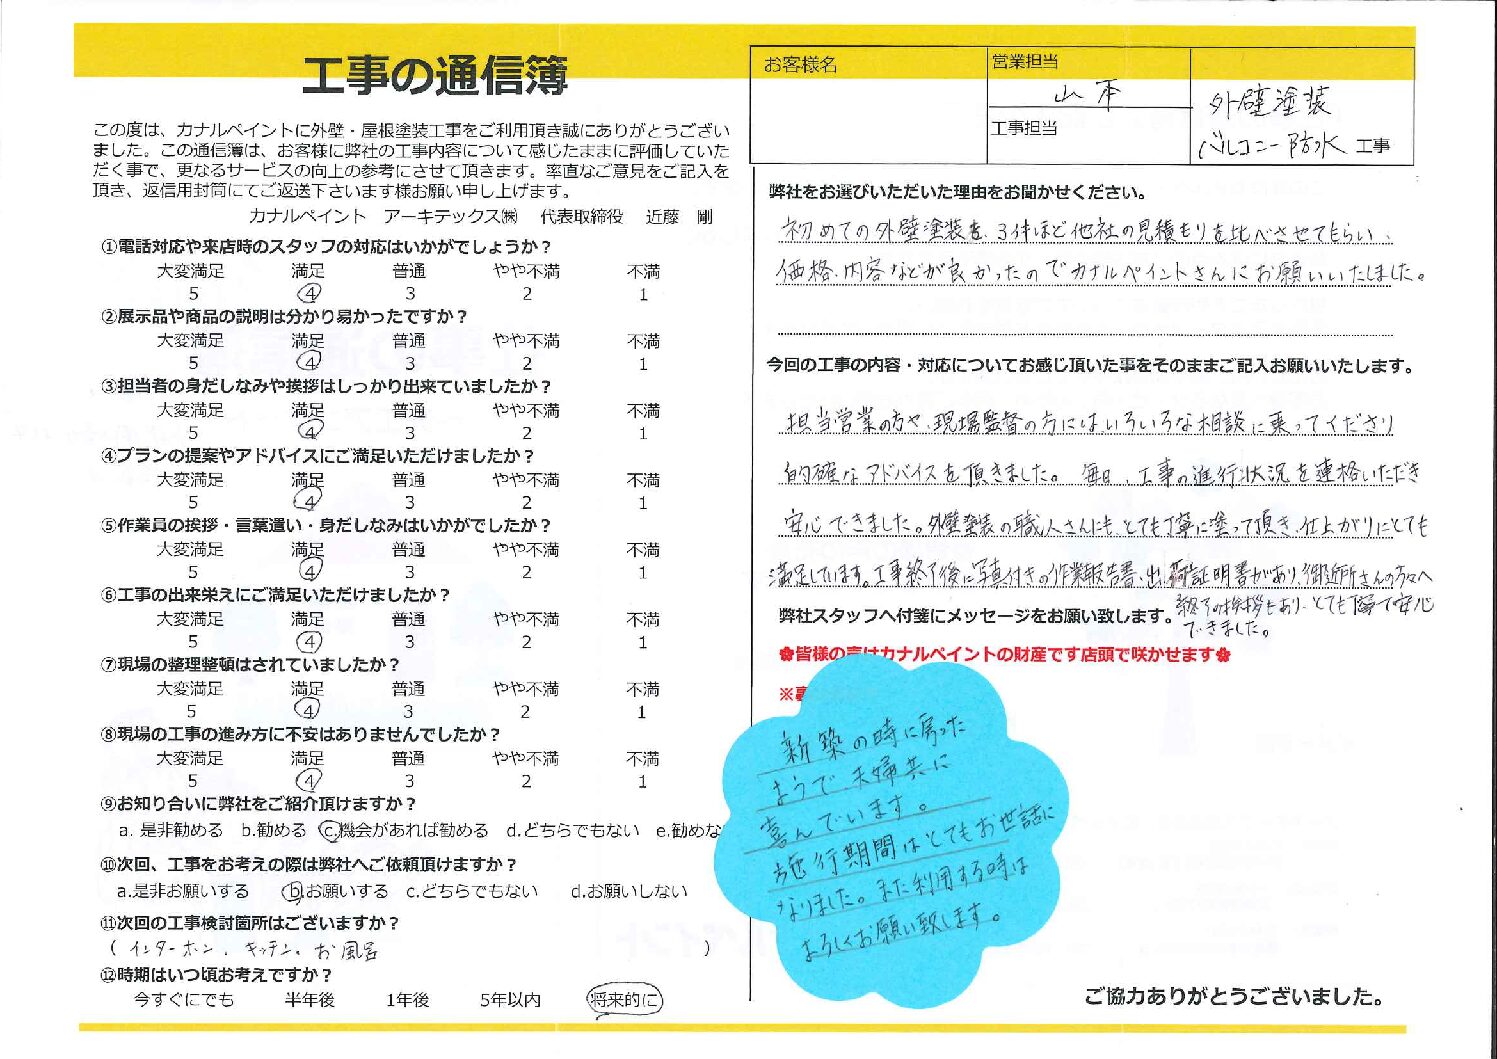 工事の通信簿
この度は、カナルペイントに外壁・屋根塗装工事をご利用頂き誠にありがとうござい
ました。この通信簿は、お客様に弊社の工事内容について感じたままに評価していた
だく事で、更なるサービスの向上の参考にさせて頂きます。率直なご意見をご記入を
頂き、返信用封筒にてご返送下さいます様お願い申し上げます。
カナルペイント　アーキテックス㈱　代表取締役　近藤　剛
①電話対応や来店時のスタッフの対応はいかがでしょうか？
大変満足 満足 普通 やや不満 不満
5 4 3 2 1
②展示品や商品の説明は分かり易かったですか？
大変満足 満足 普通 やや不満 不満
5 4 3 2 1
③担当者の身だしなみや挨拶はしっかり出来ていましたか？
大変満足 満足 普通 やや不満 不満
5 4 3 2 1
④プランの提案やアドバイスにご満足いただけましたか？
大変満足 満足 普通 やや不満 不満
5 4 3 2 1
⑤作業員の挨拶・言葉遣い・身だしなみはいかがでしたか？
大変満足 満足 普通 やや不満 不満
5 4 3 2 1
⑥工事の出来栄えにご満足いただけましたか？
大変満足 満足 普通 やや不満 不満
5 4 3 2 1
⑦現場の整理整頓はされていましたか？
大変満足 満足 普通 やや不満 不満
5 4 3 2 1
⑧現場の工事の進み方に不安はありませんでしたか？
大変満足 満足 普通 やや不満 不満
5 4 3 2 1
⑨お知り合いに弊社をご紹介頂けますか？
a. 是非勧める b.勧める c.機会があれば勧める d.どちらでもない e.勧めな
⑩次回、工事をお考えの際は弊社へご依頼頂けますか？
a.是非お願いする b.お願いする c.どちらでもない d.お願いしない
⑪次回の工事検討箇所はございますか？
( インターホン、キッチン、お風呂 )
⑫時期はいつ頃お考えですか？
今すぐにでも 半年後 1年後 5年以内 将来的に
お客様名 営業担当
山本
工事担当
外壁塗装
バルコニー防水 工事
弊社をお選びいただいた理由をお聞かせください。
初めての外壁塗装を、3件ほど他社の見積もりを比べさせてもらい、
価格、内容などが良かったのでカナルペイントさんにお願いいたしました。
今回の工事の内容・対応についてお感じ頂いた事をそのままご記入お願いいたします。
担当営業の方や、現場監督の方にはいろいろな相談に乗ってくださり
的確なアドバイスを頂きました。毎日、工事の進行状況を連絡いただき
安心できました。外壁塗装の職人さんにも、とても丁寧に塗って頂き、仕上がりにとても
満足しています。工事終了後に写真付きの作業報告書、出荷証明書があり、御近所さんの方々へ
終了の挨拶もあり、とても丁寧で安心
できました。
弊社スタッフへ付箋にメッセージをお願い致します。
✿皆様の声はカナルペイントの財産です店頭で咲かせます✿
※
新築の時に戻った
ようで、夫婦共に
喜んでいます。
施行期間はとてもお世話に
なりました。また利用する時は
よろしくお願い致します。
ご協力ありがとうございました。